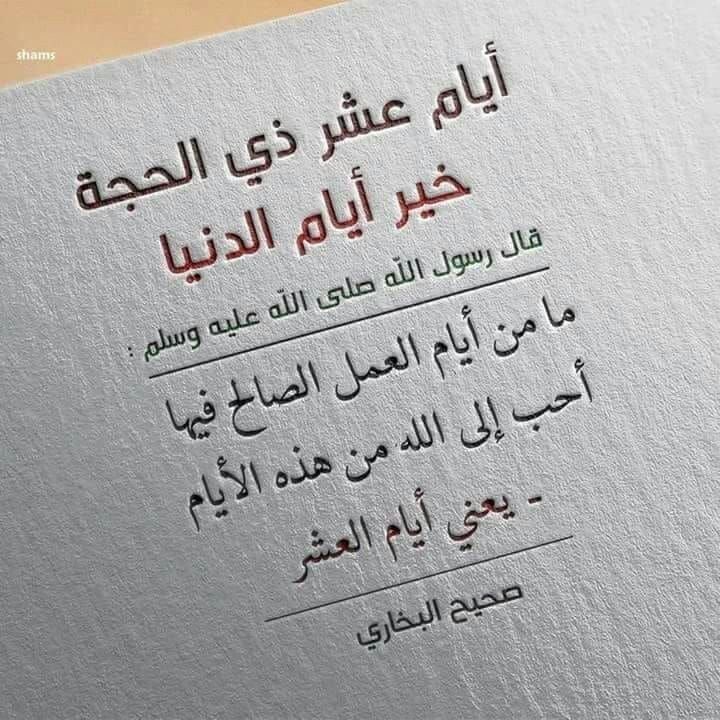 shams
أيام عشر ذي الحجة
خير أيام الدنيا
قال رسول الله صلى الله عليه وسلم :
ما من أيام العمل الصالح فيها
أحب إلى الله من هذه الأيام
- يعني أيام العشر
صحيح البخاري